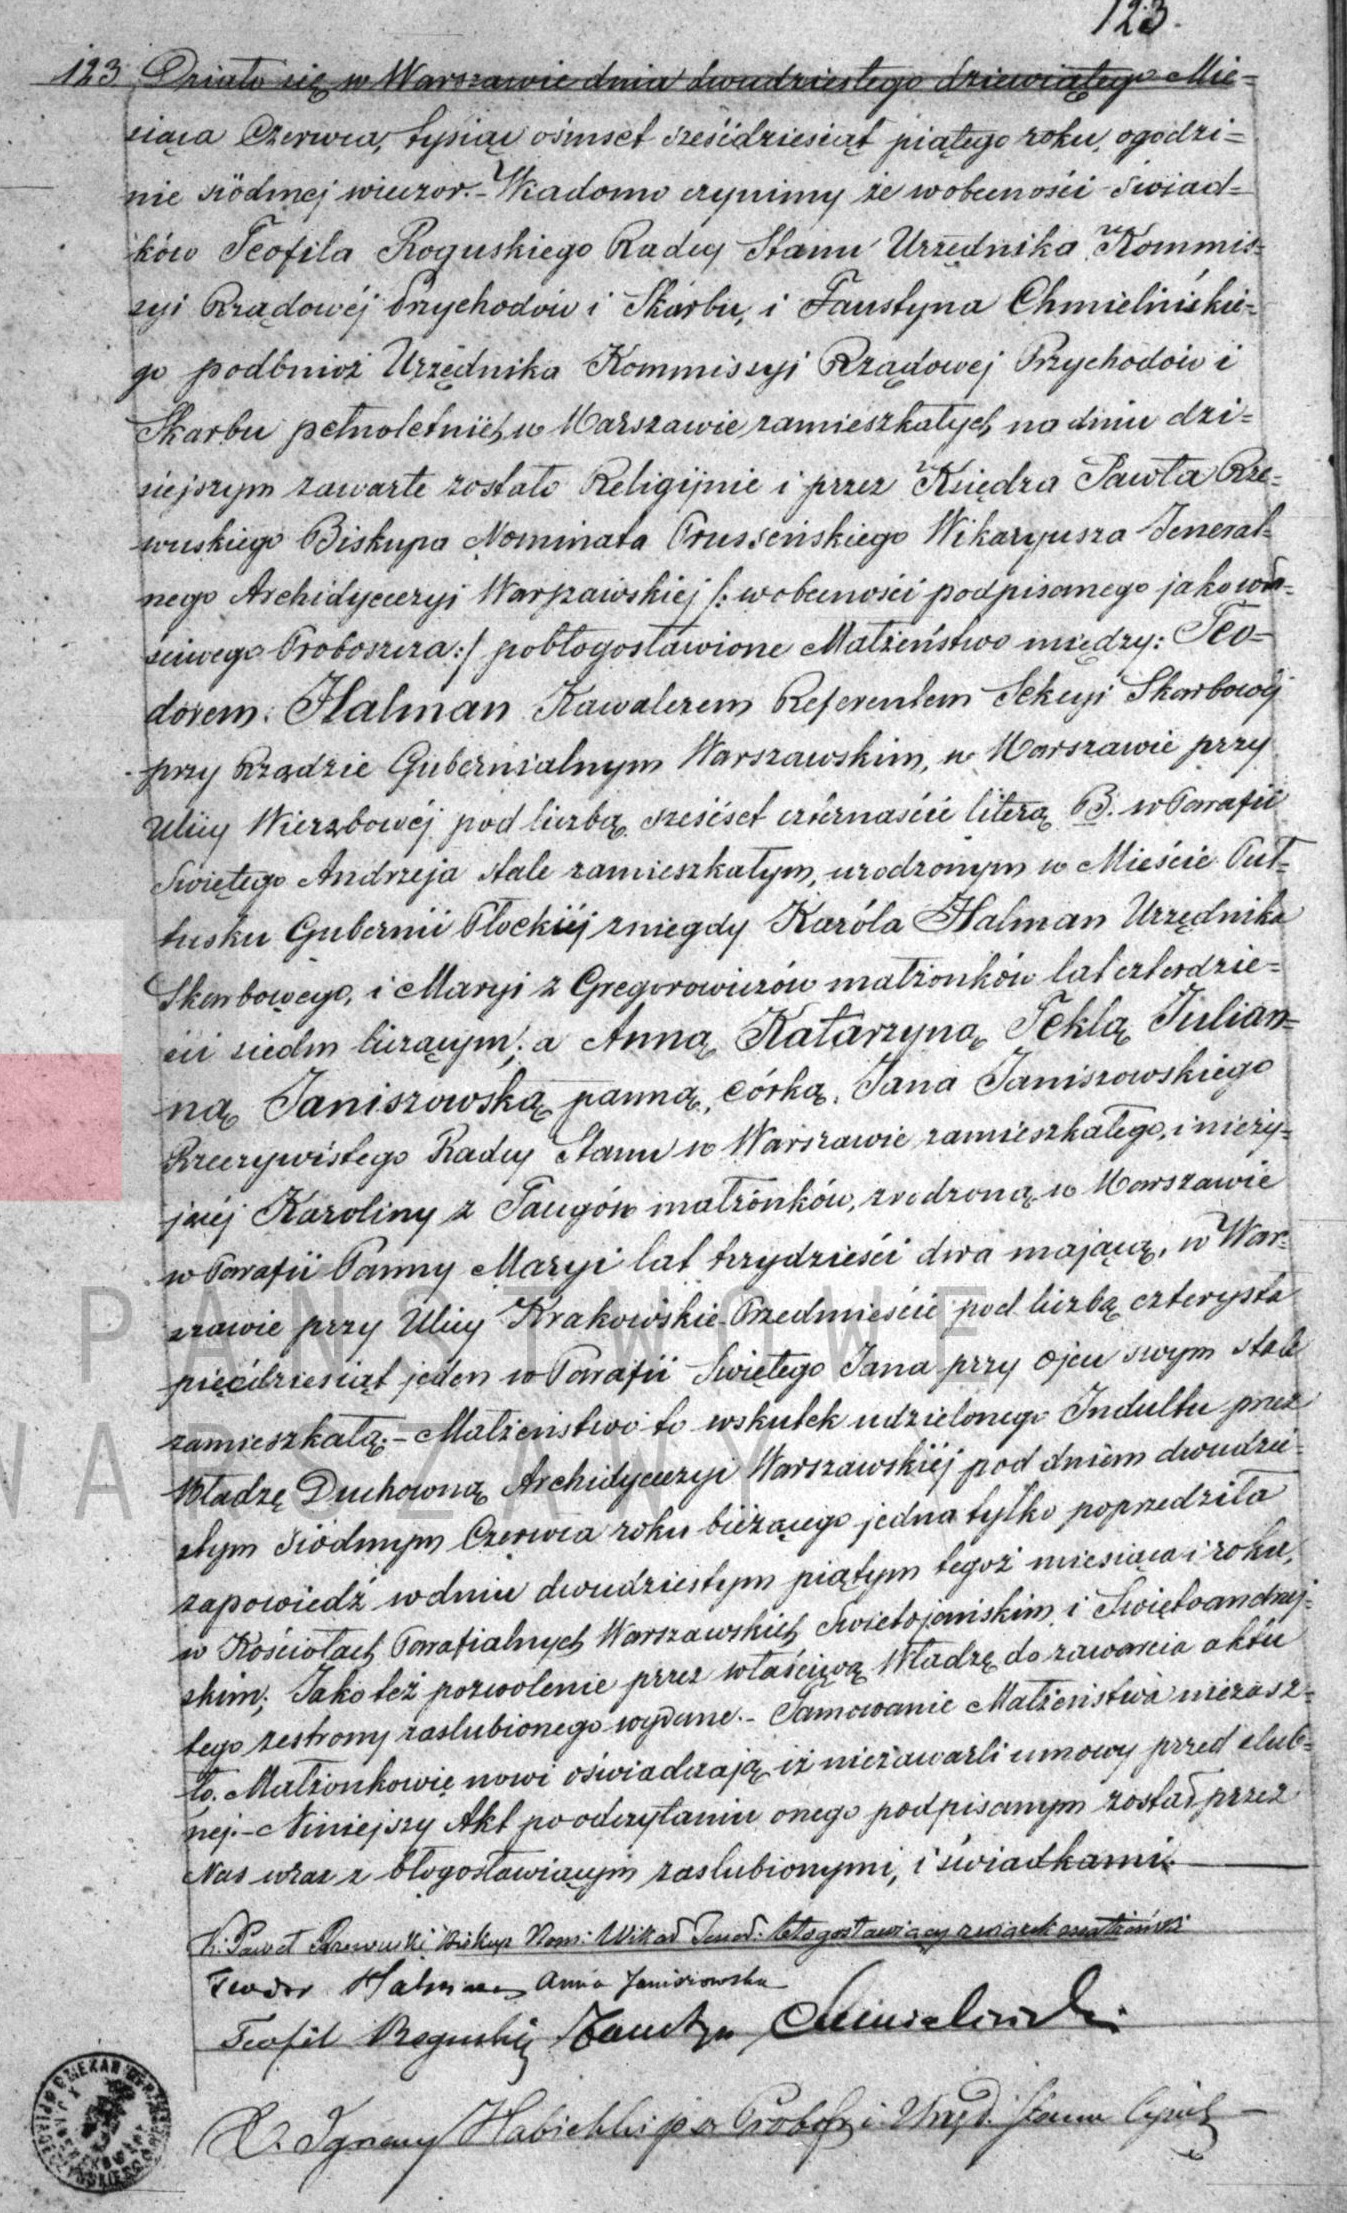 123.
123 Działo się w Warszawie dnia dwudziestego dziewiątego Mie=
siąca Czerwca, tysiąc ośmset sześćdziesiąt piątego roku, ogodzi=
nie siódmej wieczor.- Wiadomo czynimy że wobecności świad=
ków Teofila Roguskiego Radcy Stanu Urzędnika Kommis=
syi Rządowéj Przychodów i Skarbu, i Faustyna Chmielińskie=
go podobnież Urzędnika Kommissyi Rządowej Przychodów i
Skarbu pełnoletnich w Warszawie zamieszkałych na dniu dzi=
siejszym zawarte zostało Religijnie i przez Księdza Pawła Rze=
wuskiego Biskupa Nominata Prusseńskiego Wikaryusza Jeneral=
nego Archidyecezyi Warszawskiej /: wobecności podpisanego jako wła=
ściwego Proboszcza :/ pobłogosławione Małżeństwo między: Teo=
dorem Halman Kawalerem Referentem Sekcyi Skarbowéj
przy Rządzie Gubernialnym Warszawskim, w Warszawie przy
Ulicy Wierzbowéj pod liczbą sześćset czternaście literą B. w Parafii
Świętego Andrzeja stale zamieszkałym, urodzonym w Mieście Puł=
tusku Gubernii Płockiéj z niegdy Karóla Halman Urzędnika
Skarbowego, i Maryi z Gregorowiczów małżonków lat czterdzie=
ści siedm liczącym; a Anną Katarzyną Teklą Julian=
ną Janiszowską panną, córką Jana Janiszowskiego
Rzeczywistego Radcy Stanu w Warszawie zamieszkałego, i nieży=
jącéj Karoliny z Langów małżonków, zrodzoną w Warszawie
w Parafii Panny Maryi lat trzydzieści dwa mającą, w War=
szawie przy Ulicy Krakowskie-Przedmieście pod liczbą czterysta
pięćdziesiąt jeden w Parafii Świętego Jana przy Ojcu swym stale
zamieszkałą.- Małżeństwo to wskutek udzielonego Indultu przez
Władzę Duchowną Archidyecezyi Warszawskiéj pod dniem dwudzie=
stym siódmym Czerwca roku bieżącego jedna tylko poprzedziła
zapowiedź w dniu dwudziestym piątym tegoż miesiąca i roku,
w Kościołach Parafialnych Warszawskich Świętojańskim i Świętoandrzej=
skim; Jako też pozwolenie przez właściwą Władzę do zawarcia aktu
tego ze strony zaślubionego wydane.- Tamowanie Małżeństwa niezasz=
ło. Małżonkowie nowi oświadczają iż niezawarli umowy przedślub=
nej.- Niniejszy Akt po odczytaniu onego podpisanym został przez
Nas wraz z błogosławiącym zaślubionymi, i świadkami.
X. Paweł Rzewuski Biskup Nom: Wikar Jener: błogosławiący związek małżeński
Teodor Halman Anna Janiszowska
Teofil Roguski Faustyn Chmieliński
X. Ignacy Proboszcz i Urzęd. Stanu Cywil
PAŃSTWOWE
WARSZAWY